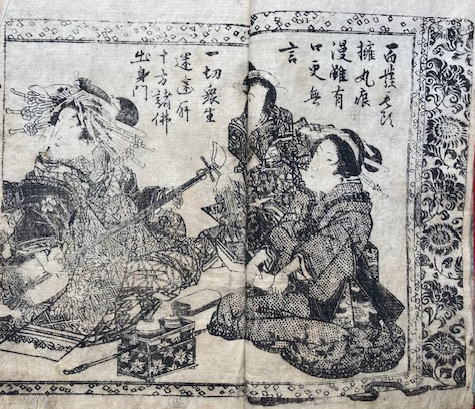 百億毛頭
擁丸痕
漫雖有
口更無
言
一切衆生
迷途所
十方諸佛
出身門